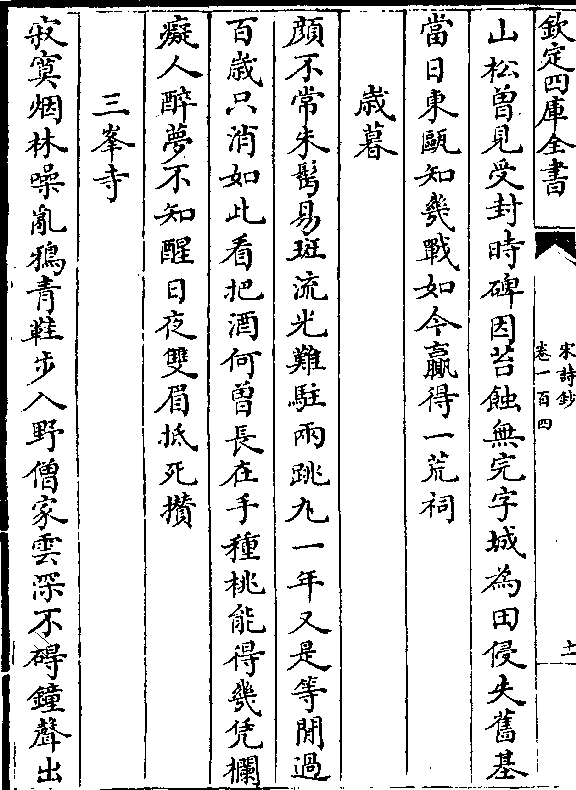 欽定四庫全書
宋詩鈔
卷一百四
十
山松曽見受封時碑因苔蝕無完字城為田侵失舊基
當日東甌知幾戰如今贏得一荒祠
歳暮
顔不常朱鬢易斑流光難駐兩跳丸一年又是等閒過
百歳只消如此看把酒何曽長在手種桃能得幾凭欄
癡人醉夢不知醒日夜雙眉抵死攅
三峯寺
寂寞烟林噪亂鴉青鞋步入野僧家雲深不碍鐘聲出